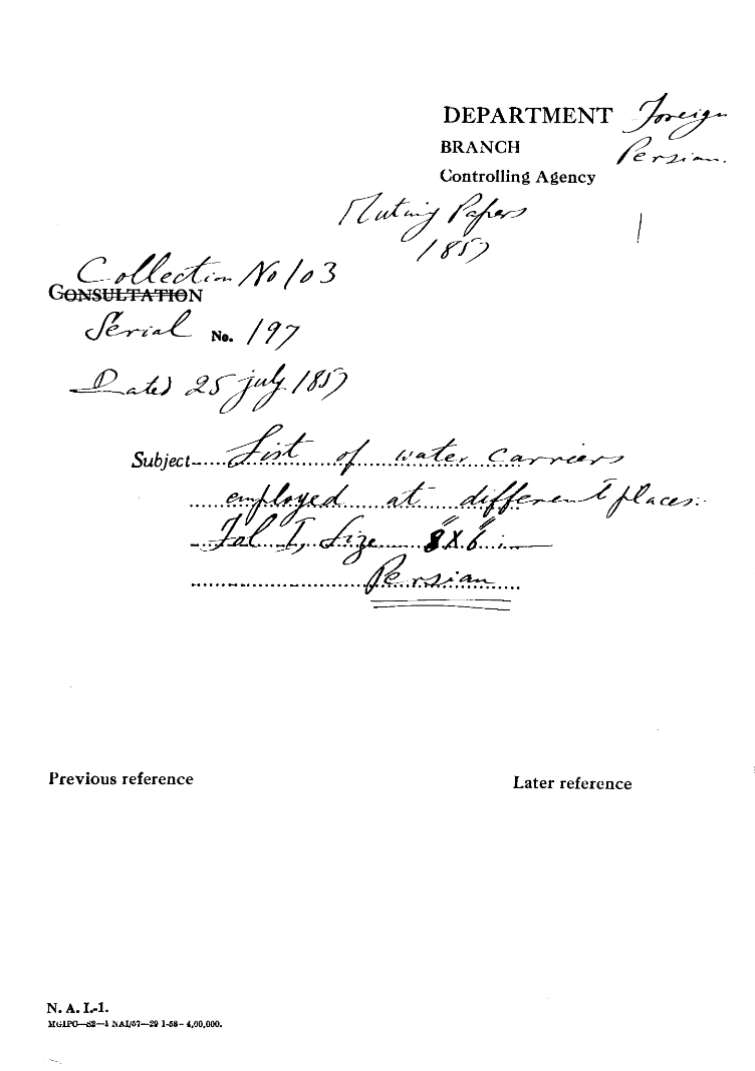 DEPARTMENT Foreign
BRANCH Persian.
Controlling Agency
Mutiny Papers
1857
Collection No 103
CONSULTATION
Serial No. 197
Dated 25 july 1857
Subject List of water carriers
employed at different places.
Fol I, Size 8"X6"
Persian
Previous reference
Later reference
N. A. I.-1.
MGIPC—S2—1 NAI/57—29-1-58—4,00,000.